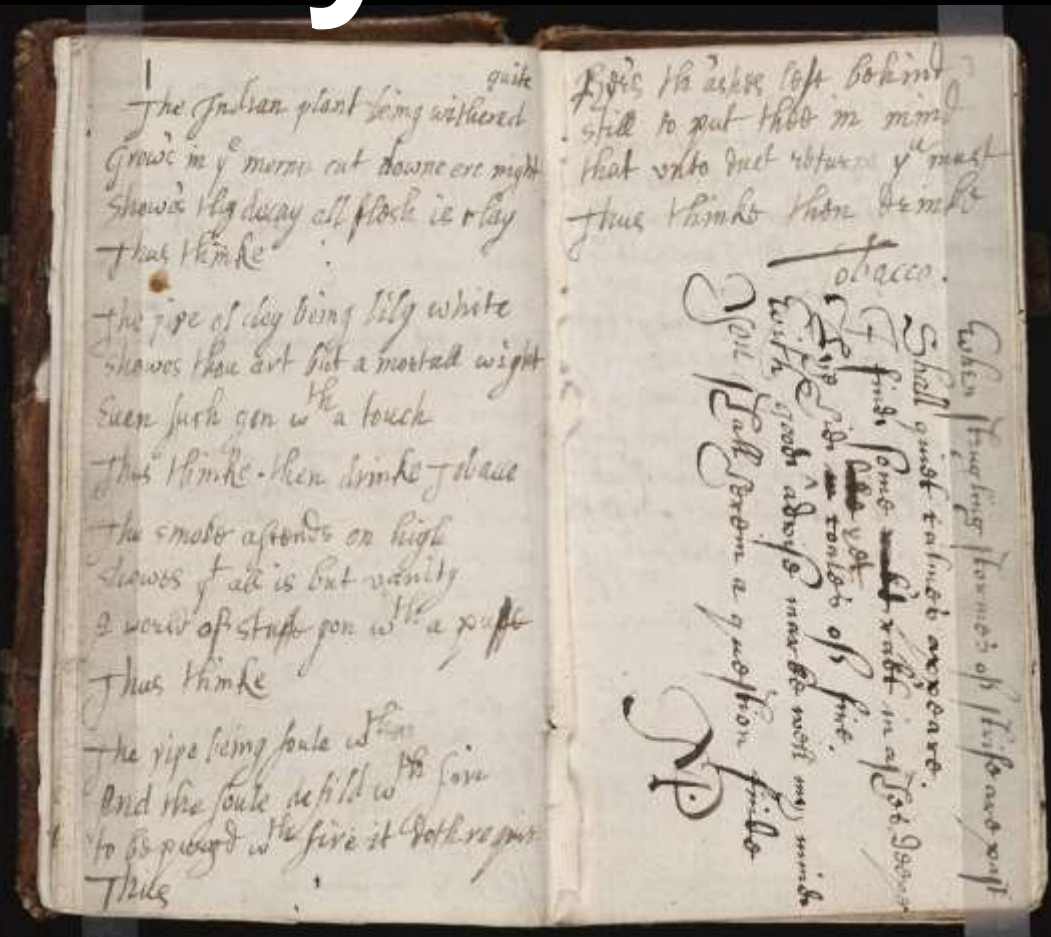 quite
The Indian plant being withered
Growe in yᵉ morne cut downe ere night
Showes thy decay all flesh is clay
Thus thinke
The pipe of clay being lily white
Showes thou art but a mortall wight
Euen such gon wᵗʰ a touch
Thus thinke then drinke Tobacco
The smoke ascends on high
Showes yᵗ all is but vanity
A world of stuffe gon wᵗʰ a puffe
Thus thinke
The pipe being foule wᵗʰin
And the soule defild wᵗʰ sin
to be purgd wᵗʰ fire it doth requir
Thus
th ashes left behind
still to put thee in mind
that vnto dust returne yᵘ must
Thus thinke then drinke
Tobacco.
When strugling stormes of strife are past
Shall quiet calmes appeare.
I finde some in ashes
of fire.
with good advise marke well my minde
You shall a question finde